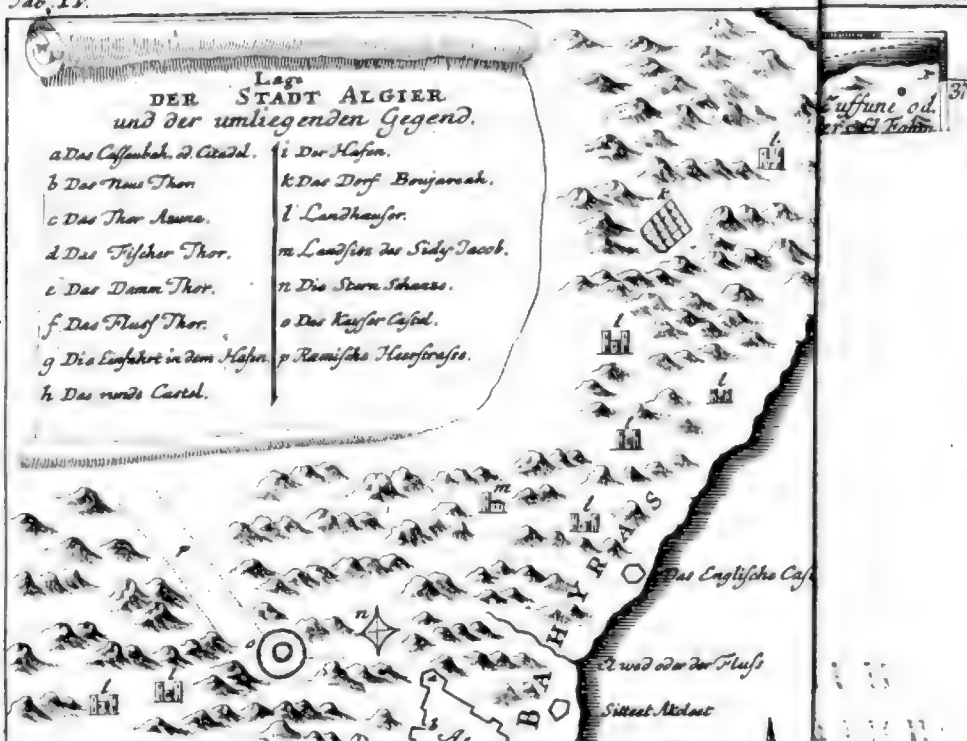 Tab. IV.
Lage
DER STADT ALGIER
und der umliegenden Gegend.
a Das Cassaubah, od. Citadel.
b Das Neue Thor.
c Das Thor Azuna.
d Das Fischer Thor.
e Das Damm Thor.
f Das Fluss Thor.
g Die Einfahrt in dem Hafen.
h Das runde Castel.
i Der Hafen.
k Das Dorf Boujareah.
l Landhauser.
m Landsitz des Sidy Jacob.
n Die Stern Schanze.
o Das Kayser Castel.
p Ramische Heerstrasse.
uffune od.
37
l
k
l
l
l
m
l
BAHYRAS
Das Englische Cas
n
o
A wed oder der Fluss
l
l
Sitteet Akoleet